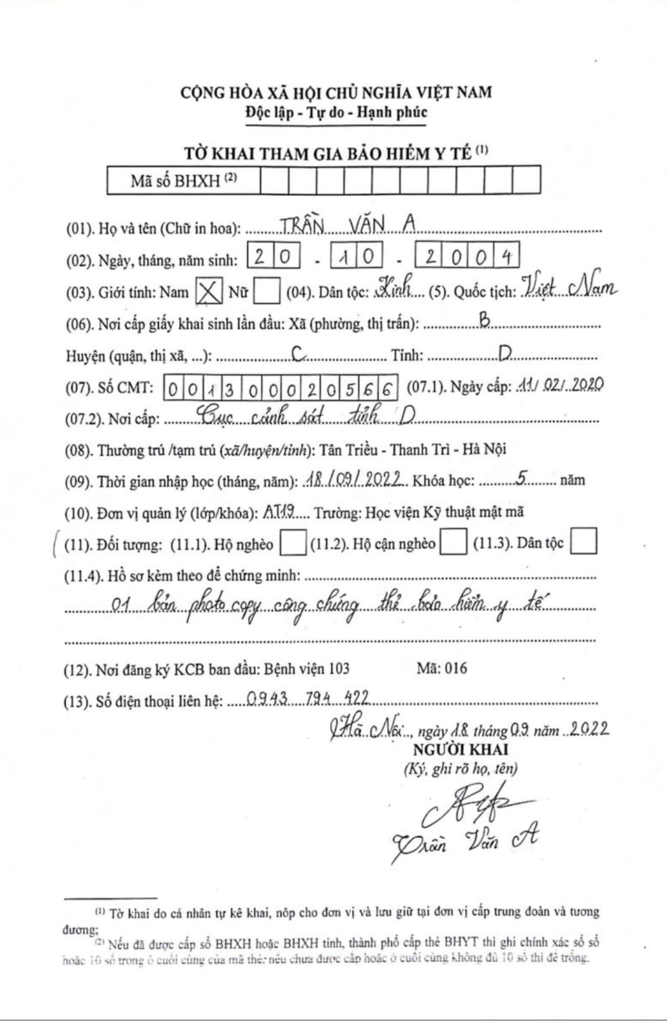 CỘNG HÒA XÃ HỘI CHỦ NGHĨA VIỆT NAM
Độc lập - Tự do - Hạnh phúc
TỜ KHAI THAM GIA BẢO HIỂM Y TẾ (1)
Mã số BHXH (2)
(01). Họ và tên (Chữ in hoa): TRẦN VĂN A
(02). Ngày, tháng, năm sinh: 20 - 10 - 2004
(03). Giới tính: Nam X Nữ (04). Dân tộc: Kinh (5). Quốc tịch: Việt Nam
(06). Nơi cấp giấy khai sinh lần đầu: Xã (phường, thị trấn): B
Huyện (quận, thị xã, ...): C Tỉnh: D
(07). Số CMT: 001300020566 (07.1). Ngày cấp: 11/02/2020
(07.2). Nơi cấp: Cục cảnh sát tỉnh D
(08). Thường trú /tạm trú (xã/huyện/tỉnh): Tân Triều - Thanh Trì - Hà Nội
(09). Thời gian nhập học (tháng, năm): 18/09/2022 Khóa học: 5 năm
(10). Đơn vị quản lý (lớp/khóa): AT19 Trường: Học viện Kỹ thuật mật mã
(11). Đối tượng: (11.1). Hộ nghèo (11.2). Hộ cận nghèo (11.3). Dân tộc
(11.4). Hồ sơ kèm theo để chứng minh:
01 bản photo copy công chứng thẻ bảo hiểm y tế
(12). Nơi đăng ký KCB ban đầu: Bệnh viện 103 Mã: 016
(13). Số điện thoại liên hệ: 0943 794 422
Hà Nội, ngày 18 tháng 09 năm 2022
NGƯỜI KHAI
(Ký, ghi rõ họ, tên)
Trần Văn A
(1) Tờ khai do cá nhân tự kê khai, nôp cho đơn vị và lưu giữ tại đơn vị cấp trung đoàn và tương
đương;
(2) Nếu đã được cấp số BHXH hoặc BHXH tỉnh, thành phố cấp thẻ BHYT thì ghi chính xác số sổ
hoặc 10 số trong ô cuối cùng của mã thẻ; nếu chưa được cấp hoặc ô cuối cùng không đủ 10 số thì để trống.